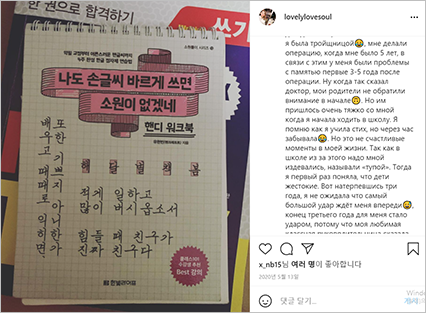 한 권으로 합격하기
쓰기
악필 교정부터 어른스러운 한글씨까지
나도 손글씨 바르게 쓰면
소원이 없겠네
핸디 워크북
배우고 때때로 익히면
또한 기쁘지 아니한가
적게 일하고
많이 버시옵소서
힘들 때 친구가
진짜 친구다
클래스101
수강생 추천
Best 강의
한빛라이프
lovelylovesoul
я была тройщницой, мне делали
операцию, когда мне было 5 лет, в
связи с этим у меня были проблемы
с памятью первые 3-5 года после
операции. Ну когда так сказал
доктор, мои родители не обратили
внимание в начале. Но им
пришлось очень тяжко со мной
когда я начала ходить в школу. Я
помню как я учила стих, но через час
забывала. Но это не счастливые
моменты в моей жизни. Так как в
школе из за этого надо мной
издевались, называли «тупой». Тогда
я первый раз поняла, что дети
жестокие. Вот натерпевшись три
года, я не ожидала что самый
большой удар ждёт меня впереди,
конец третьего года для меня стало
ударом, потому что моя любимая
x_nb15님 여러 명이 좋아합니다
2020년 5월 13일
댓글 달기...